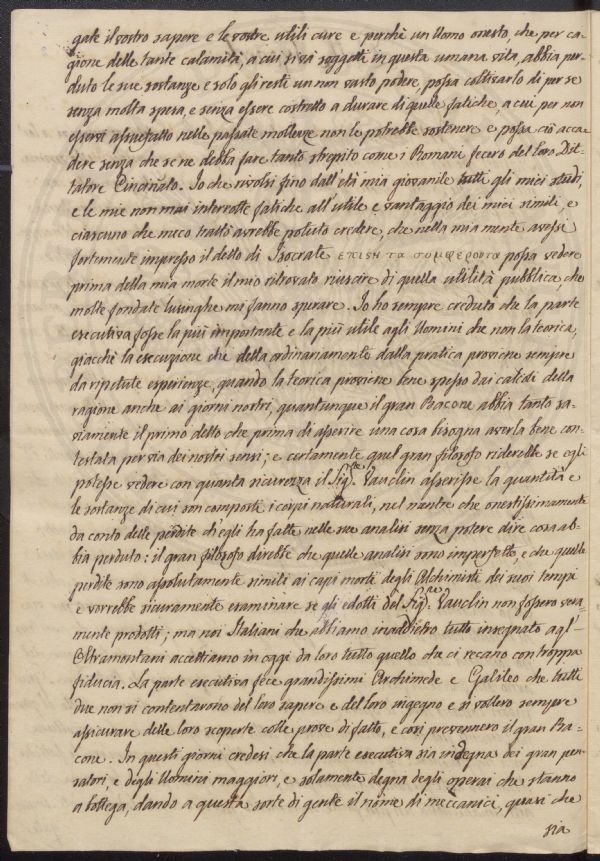 gate il vostro sapere e le vostre utili cure e perchè un Uomo onesto, che per ca=
gione delle tante calamità, a cui si và soggetti in questa umana vita, abbia per=
duto le sue sostanze e solo gli resti un non vasto podere, possa coltivarlo di per se
senza molta spesa, e senza essere costretto a durare di quelle fatiche, a cui per non
essersi assuefatto nelle passate mollezze non le potrebbe sostenere e possa ciò acca=
dere senza che se ne debba fare tanto strepito come i Romani fecero del loro Dit=
tatore Cincinato. Io che rivolsi fino dall'età mia giovanile tutti gli miei studi,
e le mie non mai interrotte fatiche all'utile e vantaggio dei miei simili, e
ciascuno che meco tratti avrebbe potuto credere, che nella mia mente avessi
fortemente impresso il detto di Isocrate επιση τα συμφεροντα possa vedere
prima della mia morte il mio ritrovato riuscire di quella utilità pubblica, che
molte fondate lusinghe mi fanno sperare. Io ho sempre creduto che la parte
esecutiva fosse la più importante e la più utile agli Uomini che non la teorica,
giacchè la esecuzione che della ordinariamente dalla pratica proviene sempre
da ripetute esperienze, quando la teorica proviene bene spesso dai calcoli della
ragione anche ai giorni nostri, quantunque il gran Bacone abbia tanto sa=
viamente il primo detto che prima di asserire una cosa bisogna averla bene con=
testata per via dei nostri sensi; e certamente quel gran filosofo riderebbe se egli
potesse vedere con quanta sicurezza il Sig.re Vauclin asserisse la quantità e
le sostanze di cui son composti i corpi naturali, nel mentre che onestissimamente
da conto delle perdite ch'egli ha fatte nelle sue analisi senza potere dire cosa ab=
bia perduto: il gran filosofo direbbe che quelle analisi sono imperfette, e che quelle
perdite sono assolutamente simili ai capi morti degli Alchimisti dei suoi tempi
e vorrebbe sicuramente esaminare se gli edotti del Sig.re Vauclin non fossero vera=
mente prodotti; ma noi Italiani che abbiamo inaddietro tutto insegnato agl'
Oltramontani accettiamo in oggi da loro tutto quello che ci recano con troppa
fiducia. La parte esecutiva fece grandissimi Archimede e Galileo che tutti
due non si contentarono del loro sapere e del loro ingegno e si vollero sempre
assicurare delle loro scoperte colle prove di fatto, e così prevennero il gran Ba=
cone. In questi giorni credesi che la parte esecutiva sia indegna dei gran pen=
satori, e degli Uomini maggiori, e solamente degna degli operai che stanno
a bottega, dando a questa sorte di gente il nome di meccanici, quasi che
sia